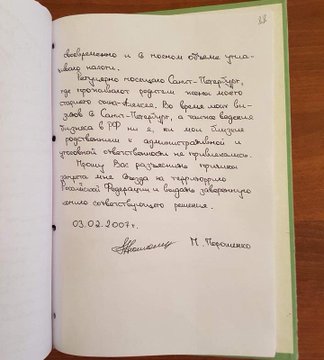 33
своевременно и в полном объеме упла-
чиваю налоги.
Регулярно посещаю Санкт-Петербург,
где проживают родители жены моего
старшего сына-Алексея. Во время моих ви-
зитов в Санкт-Петербург, а также ведения
бизнеса в РФ ни я, ни мои близкие
родственники к административной и
уголовной ответственности не привлекались.
Прошу Вас разъяснить причины
запрета мне въезда на территорию
Российской Федерации и выдать заверенную
копию соответствующего решения.
03.02.2007г.
М. Порошенко